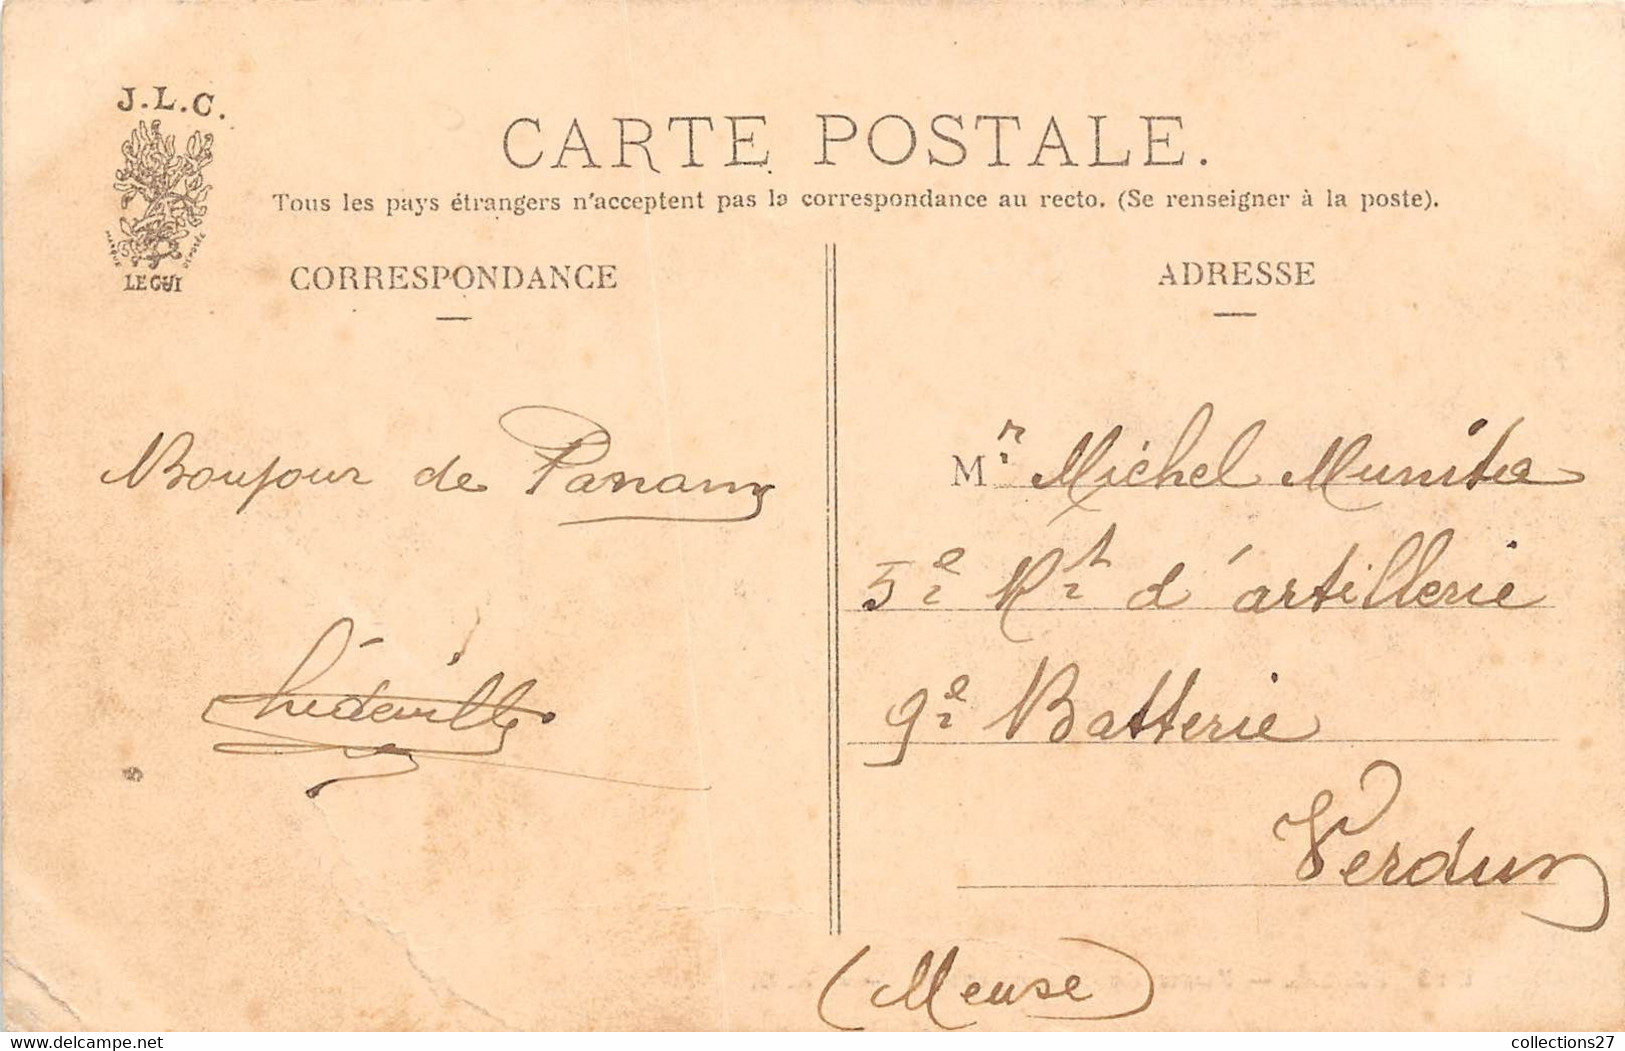 J.L.C.
MARQUE DÉPOSÉE
LE GUI
CARTE POSTALE.
Tous les pays étrangers n'acceptent pas la correspondance au recto. (Se renseigner à la poste).
CORRESPONDANCE
ADRESSE
Bonjour de Panam
Mr Michel
5e Rt d'artillerie
9e Batterie
Verdun
(Meuse)
delcampe.net
collections27